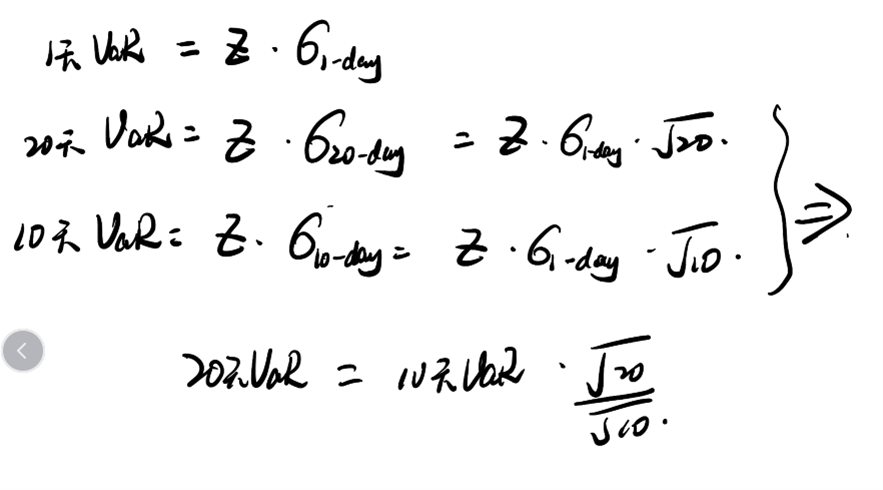 1天 VaR = Z · σ₁₋day
20天 VaR = Z · σ₂₀₋day = Z · σ₁₋day · √20.
10天 VaR = Z · σ₁₀₋day = Z · σ₁₋day · √10. } ⇒
20天VaR = 10天VaR · √20 / √10.